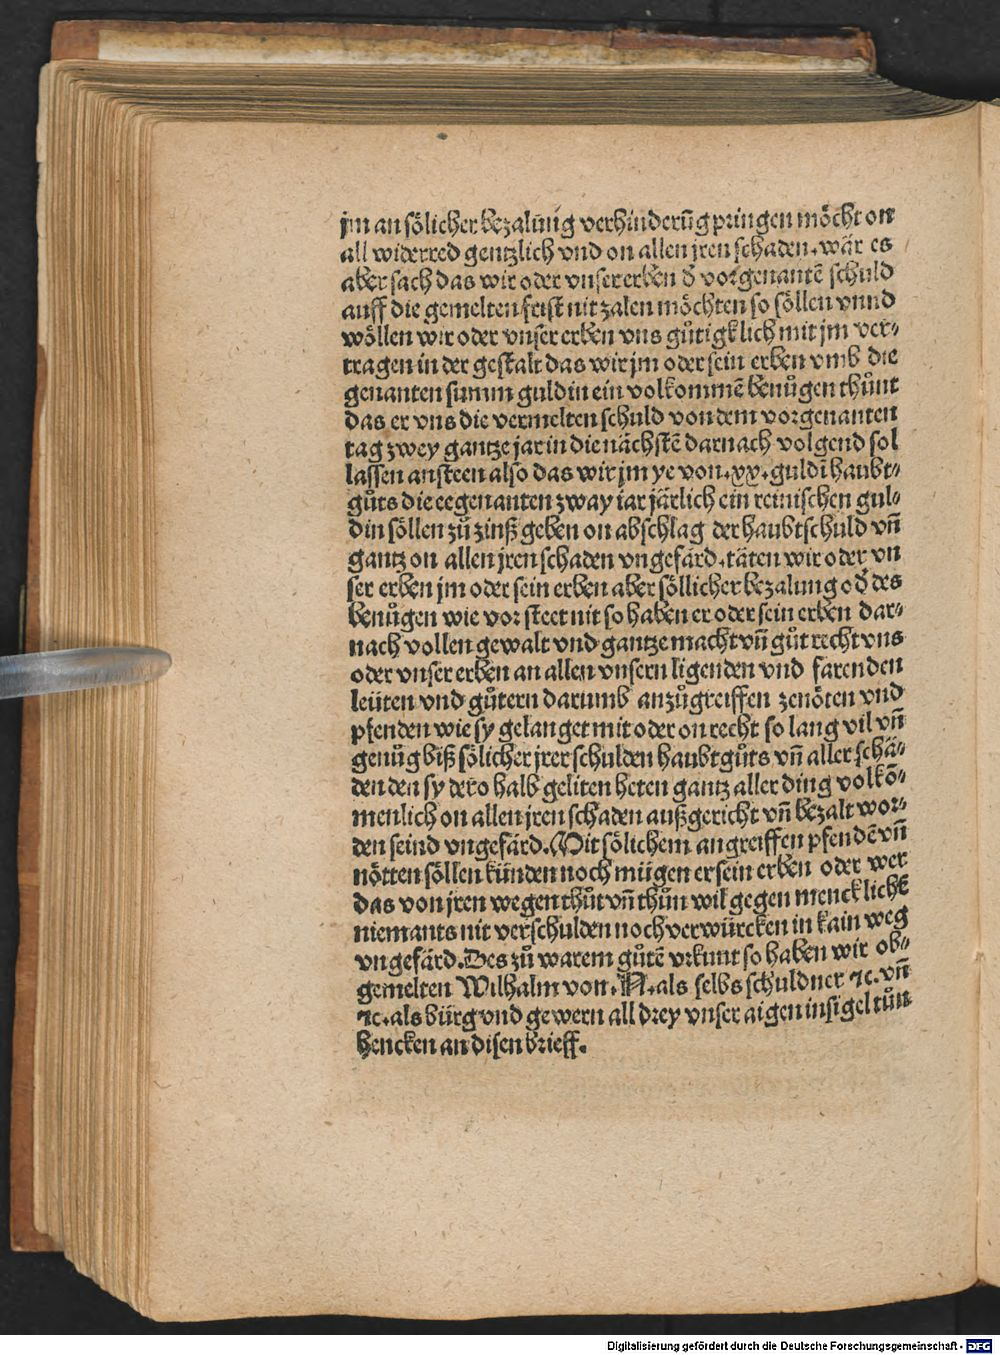 jm an sölicher bezalūng verhinderūg pringen möcht on
all widerred gentzlich vnd on allen jren schaden. wär es
aber sach das wir oder vnser erben d̕ vorgenantē schuld
auff die gemelten frist nit zalen möchten so söllen vnnd
wöllen wir oder vnser erben vns gůtigklich mit jm ver⸗
tragen in der gestalt das wir jm oder sein erben vmb die
genanten summ guldin ein volkommē benůgen thůnt
das er vns die vermelten schuld von dem vorgenanten
tag zwey gantze jar in die nächstē darnach volgend sol
lassen ansteen also das wir jm ye von .xx. guldī haubt⸗
gůts die eegenanten zway iar järlich ein reinischen gul⸗
din söllen zů zinß geben on abschlag der haubtschuld vn̄
gantz on allen jren schaden vngefärd. täten wir oder vn
ser erben jm oder sein erben aber söllicher bezalung od̕ des
benůgen wie vor steet nit so haben er oder sein erben dar⸗
nach vollen gewalt vnd gantze macht vn̄ gůt recht vns
oder vnser erben an allen vnsern ligenden vnd farenden
leüten vnd gůtern darumb anzůgreiffen zenöten vnd
pfenden wie sy gelanget mit oder on recht so lang vil vn̄
genůg biß sölicher jrer schulden haubtgůts vn̄ aller schä⸗
den den sy dero halb geliten heten gantz aller ding volkō⸗
menlich on allen jren schaden außgericht vn̄ bezalt wor⸗
den seind vngefärd. Mit sölichem angreiffen pfendē vn̄
nötten söllen künden noch mügen er sein erben oder wer
das von jren wegen thůt vn̄ thůn wil gegen mencklichē
niemants nit verschulden noch verwürcken in kain weg
vngefärd. Des zů warem gůtē vrkunt so haben wir ob⸗
gemelten Wilhalm von .N. als selbs schuldner ⁊c. vn̄
⁊c. als bürg vnd gewern all drey vnser aigen insigel tůn
hencken an disen brieff.
Digitalisierung gefördert durch die Deutsche Forschungsgemeinschaft - DFG